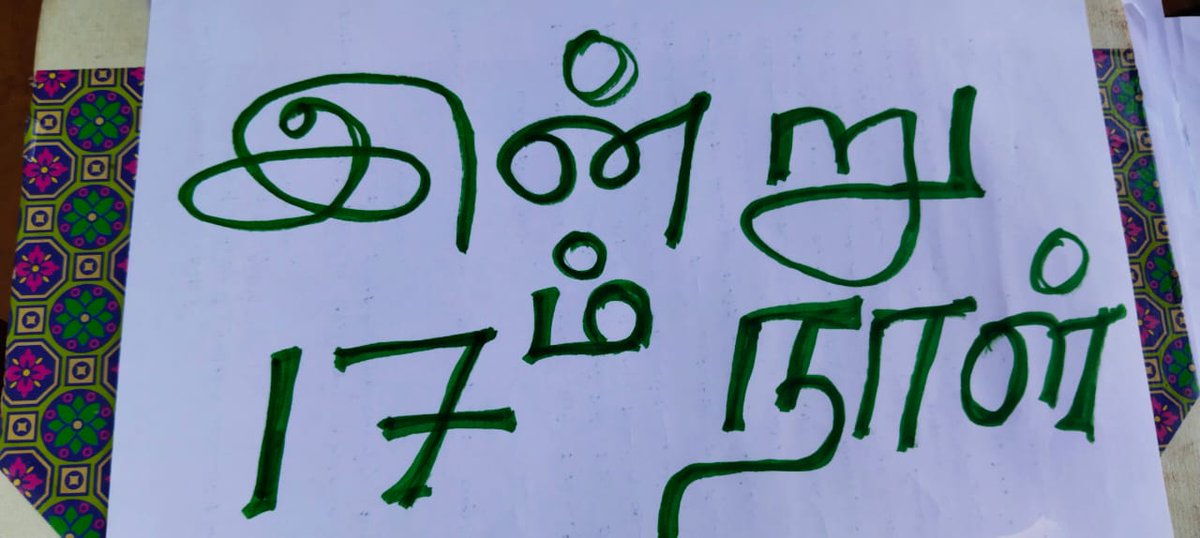 இன்று
17ம் நாள்